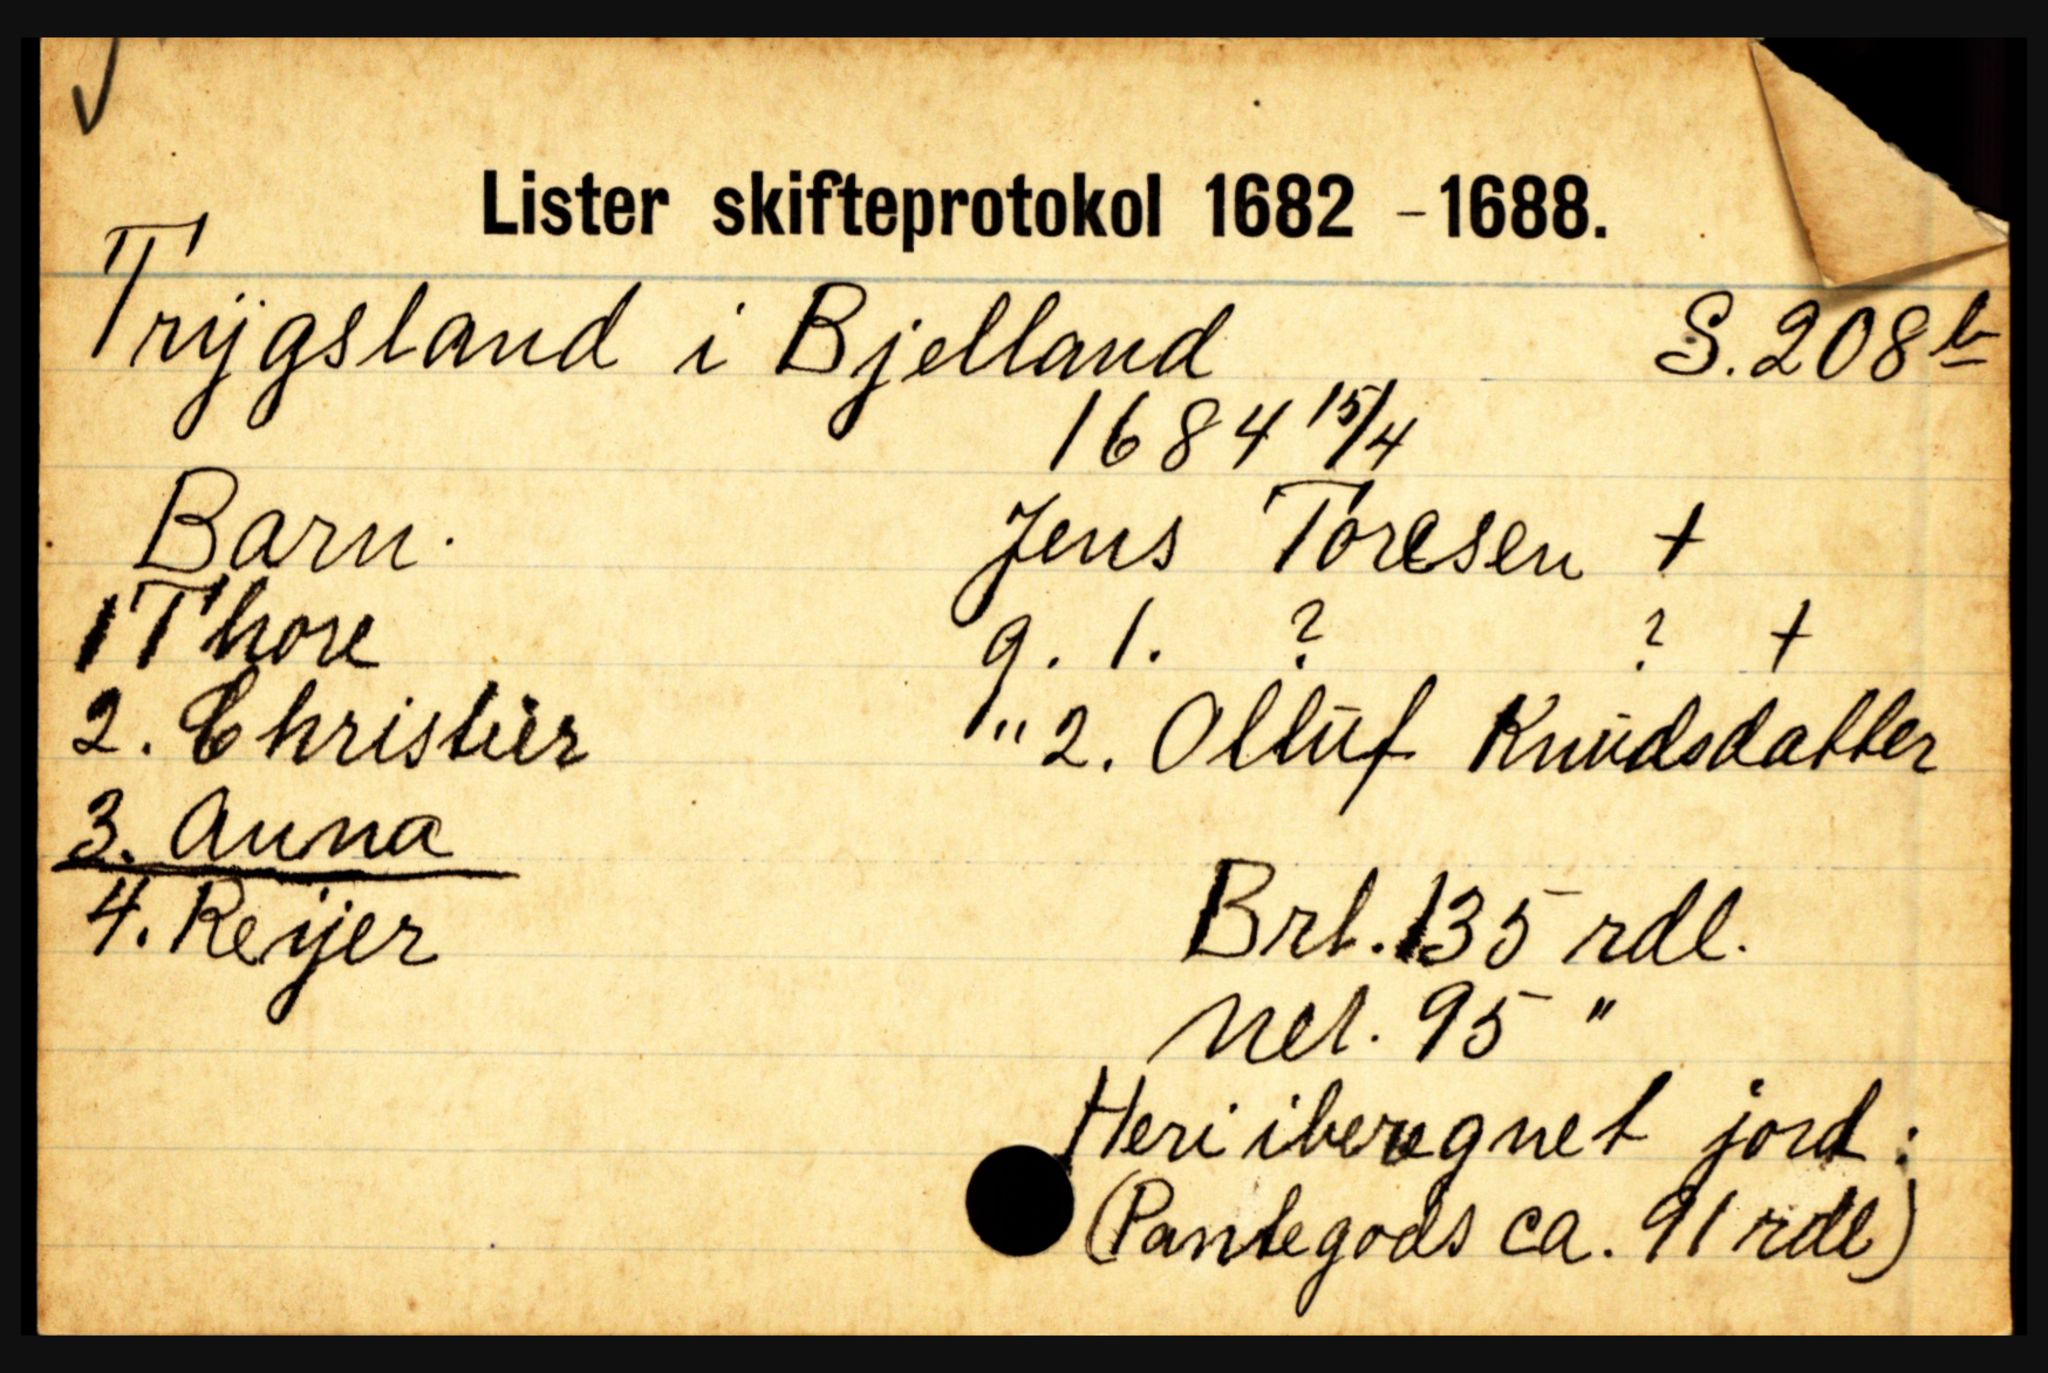 Lister skifteprotokol 1682 - 1688.
Trÿgsland i Bjelland S. 208 b
1684 15/4
Barn. Jens Toresen +
1 Thore g. 1. ? ? +
2. Christier " 2. Olluf Knudsdatter
3. Anna
4. Reijer Brt. 135 rdl.
Net. 95 "
Heri iberegnet jord:
(Pantegods ca. 91 rdl)